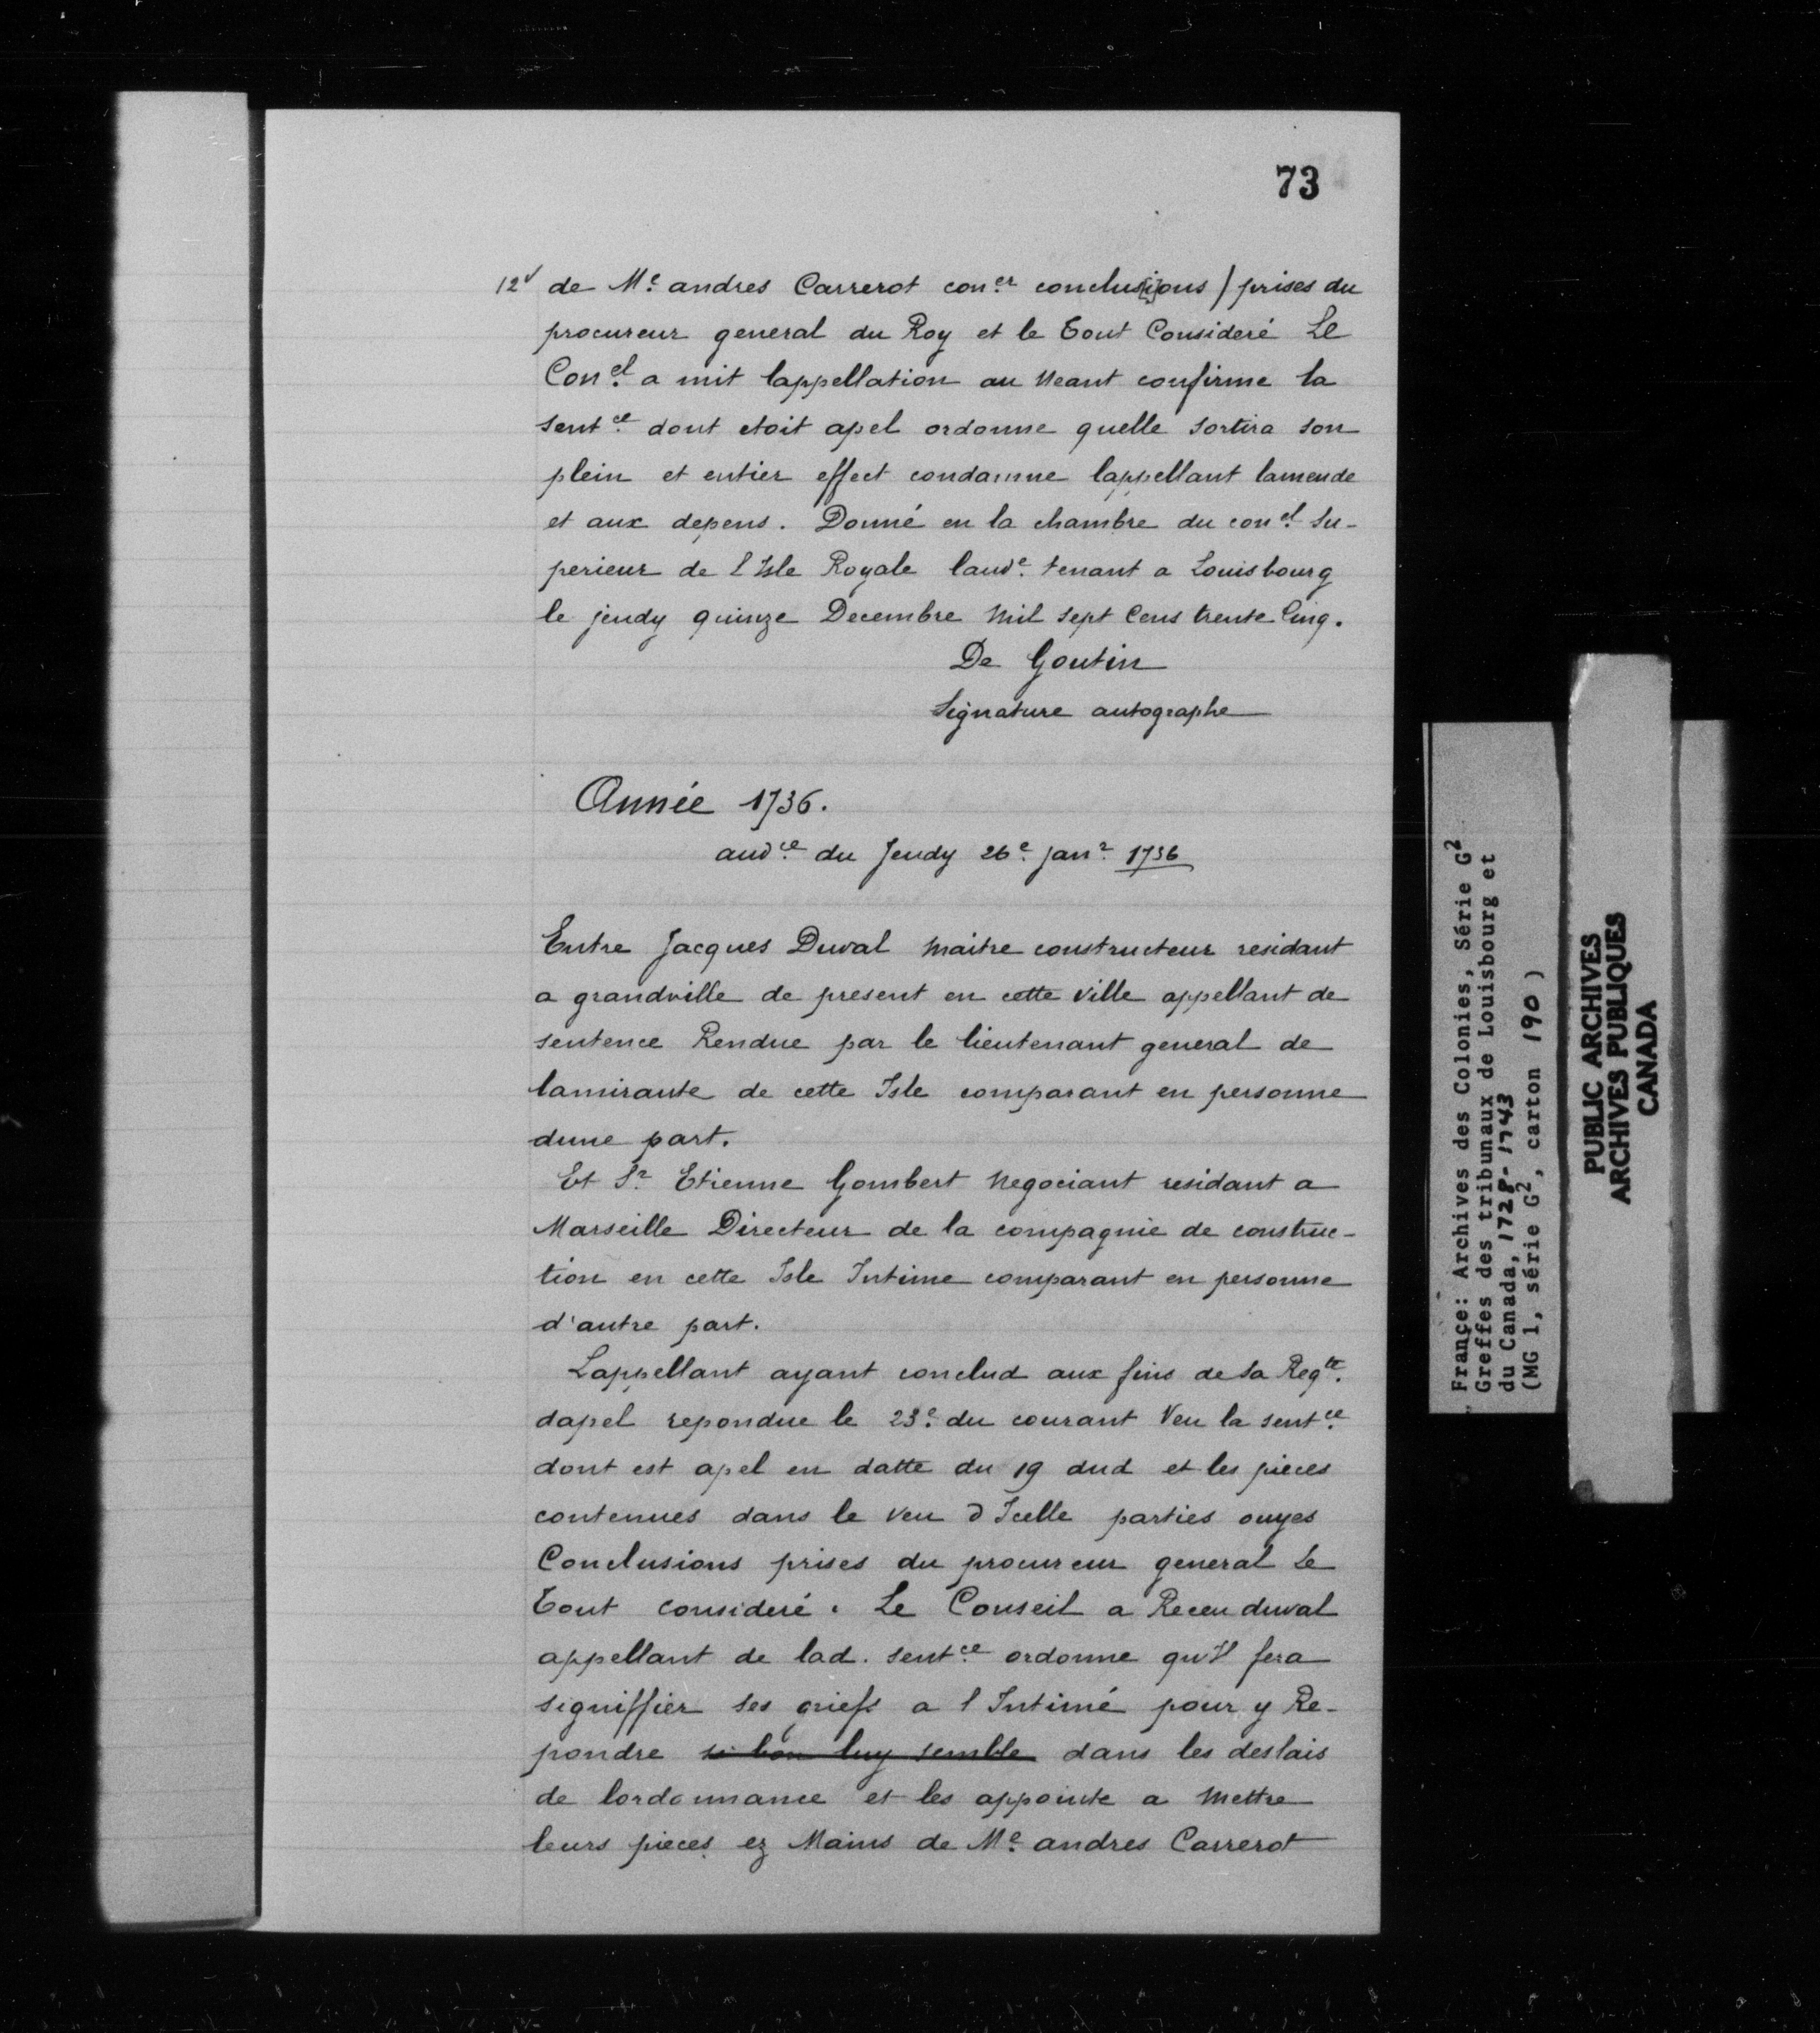 73
12v de Me andres Carrerot coner conclus[i]ons / prises du
procureur general du Roy et le Tout Consideré Le
Conel a mit lappellation au Neant confirme la
sentce dont etoit apel ordonne quelle sortira son
plein et entier effect condamne lappellant lamende
et aux depens. Donné en la chambre du conel Su-
perieur de l'Isle Royale laude tenant a Louisbourg
le jeudy quinze Decembre Mil sept Cens trente Cinq.
De Goutin
Signature autographe
Année 1736.
audce du Jeudy 26e janr 1736
Entre Jacques Duval Maitre constructeur residant
a grandville de present en cette Ville appellant de
sentence Rendue par le lieutenant general de
lamiraute de cette Isle comparant en personne
dune part.
Et Sr Etienne Gombert Negociant residant a
Marseille Directeur de la compagnie de construc-
tion en cette Isle Intime comparant en personne
d'autre part.
Lappellant ayant conclud aux fins de sa Reqte
dapel repondue le 23e du courant Veu la sentce
dont est apel en datte du 19 dud et les pieces
contenues dans le Veu d Icelle parties ouyes
Conclusions prises du procureur general Le
Tout consideré. Le Conseil a Receu duval
appellant de lad. sentce ordonne qu'il fera
signiffier ses griefs a l Intimé pour y Re-
pondre si bon luy semble dans les deslais
de lordonnance et les appointe a Mettre
leurs pieces ez Mains de Me andres Carrerot
France: Archives des Colonies, Série G2
Greffes des tribunaux de Louisbourg et
du Canada, 1728-1743
(MG 1, série G2, carton 190)
PUBLIC ARCHIVES
ARCHIVES PUBLIQUES
CANADA